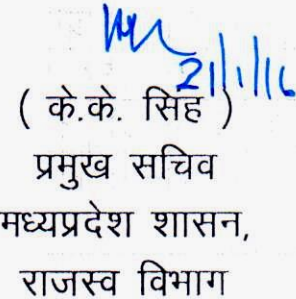 21/1/16
( के.के. सिंह )
प्रमुख सचिव
मध्यप्रदेश शासन,
राजस्व विभाग